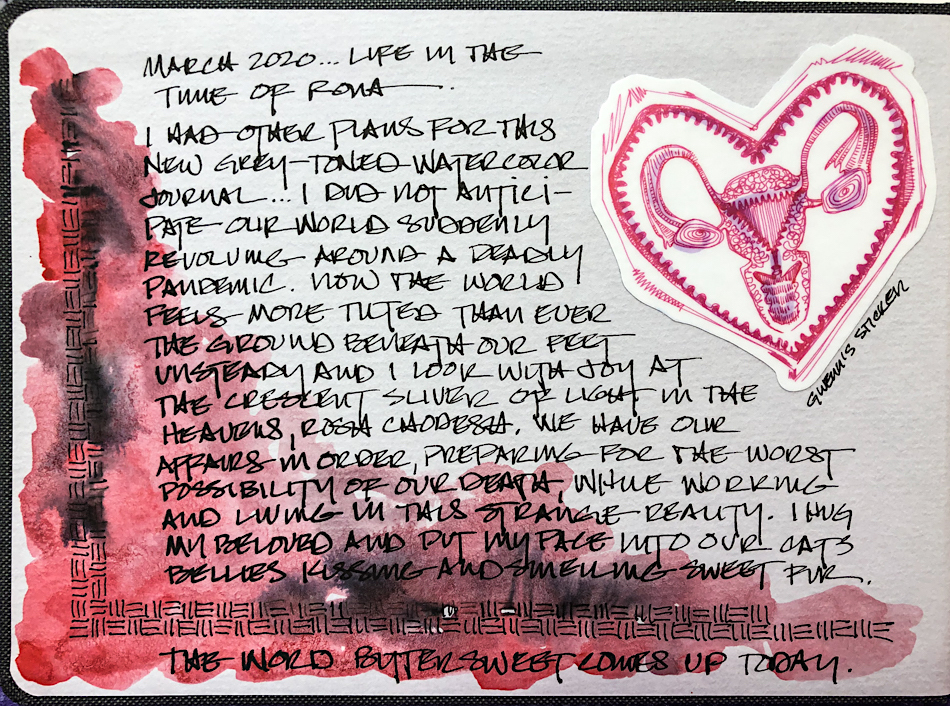 MARCH 2020... LIFE IN THE
TIME OF RONA
I HAD OTHER PLANS FOR THIS
NEW GREY-TONED WATERCOLOR
JOURNAL... I DID NOT ANTICI-
PATE OUR WORLD SUDDENLY
REVOLVING AROUND A DEADLY
PANDEMIC. NOW THE WORLD
FEELS MORE TILTED THAN EVER
THE GROUND BENEATH OUR FEET
UNSTEADY AND I LOOK WITH JOY AT
THE CRESCENT SLIVER OF LIGHT IN THE
HEAVENS, ROSH CHODESH. WE HAVE OUR
AFFAIRS IN ORDER, PREPARING FOR THE WORST
POSSIBILITY OF OUR DEATH, WHILE WORKING
AND LIVING IN THIS STRANGE REALITY. I HUG
MY BELOVED AND PUT MY FACE INTO OUR CATS
BELLIES KISSING AND SMELLING SWEET FUR.
THE WORD BITTERSWEET COMES UP TODAY.
GWENN'S STICKER